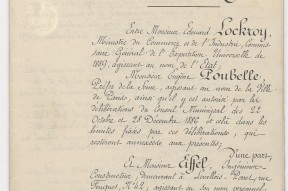 Entre Monsieur Edouard Lockroy,
Ministre du Commerce et de l'Industrie, Commis-
saire Général de l'Exposition Universelle de
1889, agissant au nom de l'Etat;
Monsieur Eugène Poubelle,
Préfet de la Seine, agissant au nom de la Ville
de Paris, ainsi qu'il y est autorisé par les
délibérations du Conseil Municipal des 22
Octobre et 28 Décembre 1886 et cela dans les
limites fixées par ces délibérations, qui
resteront annexées aux présentes;
D'une part,
Et Monsieur Eiffel, Ingénieur
Constructeur, demeurant à Levallois-Perret, rue
Fouquet, N° 42, agissant en son nom personnel